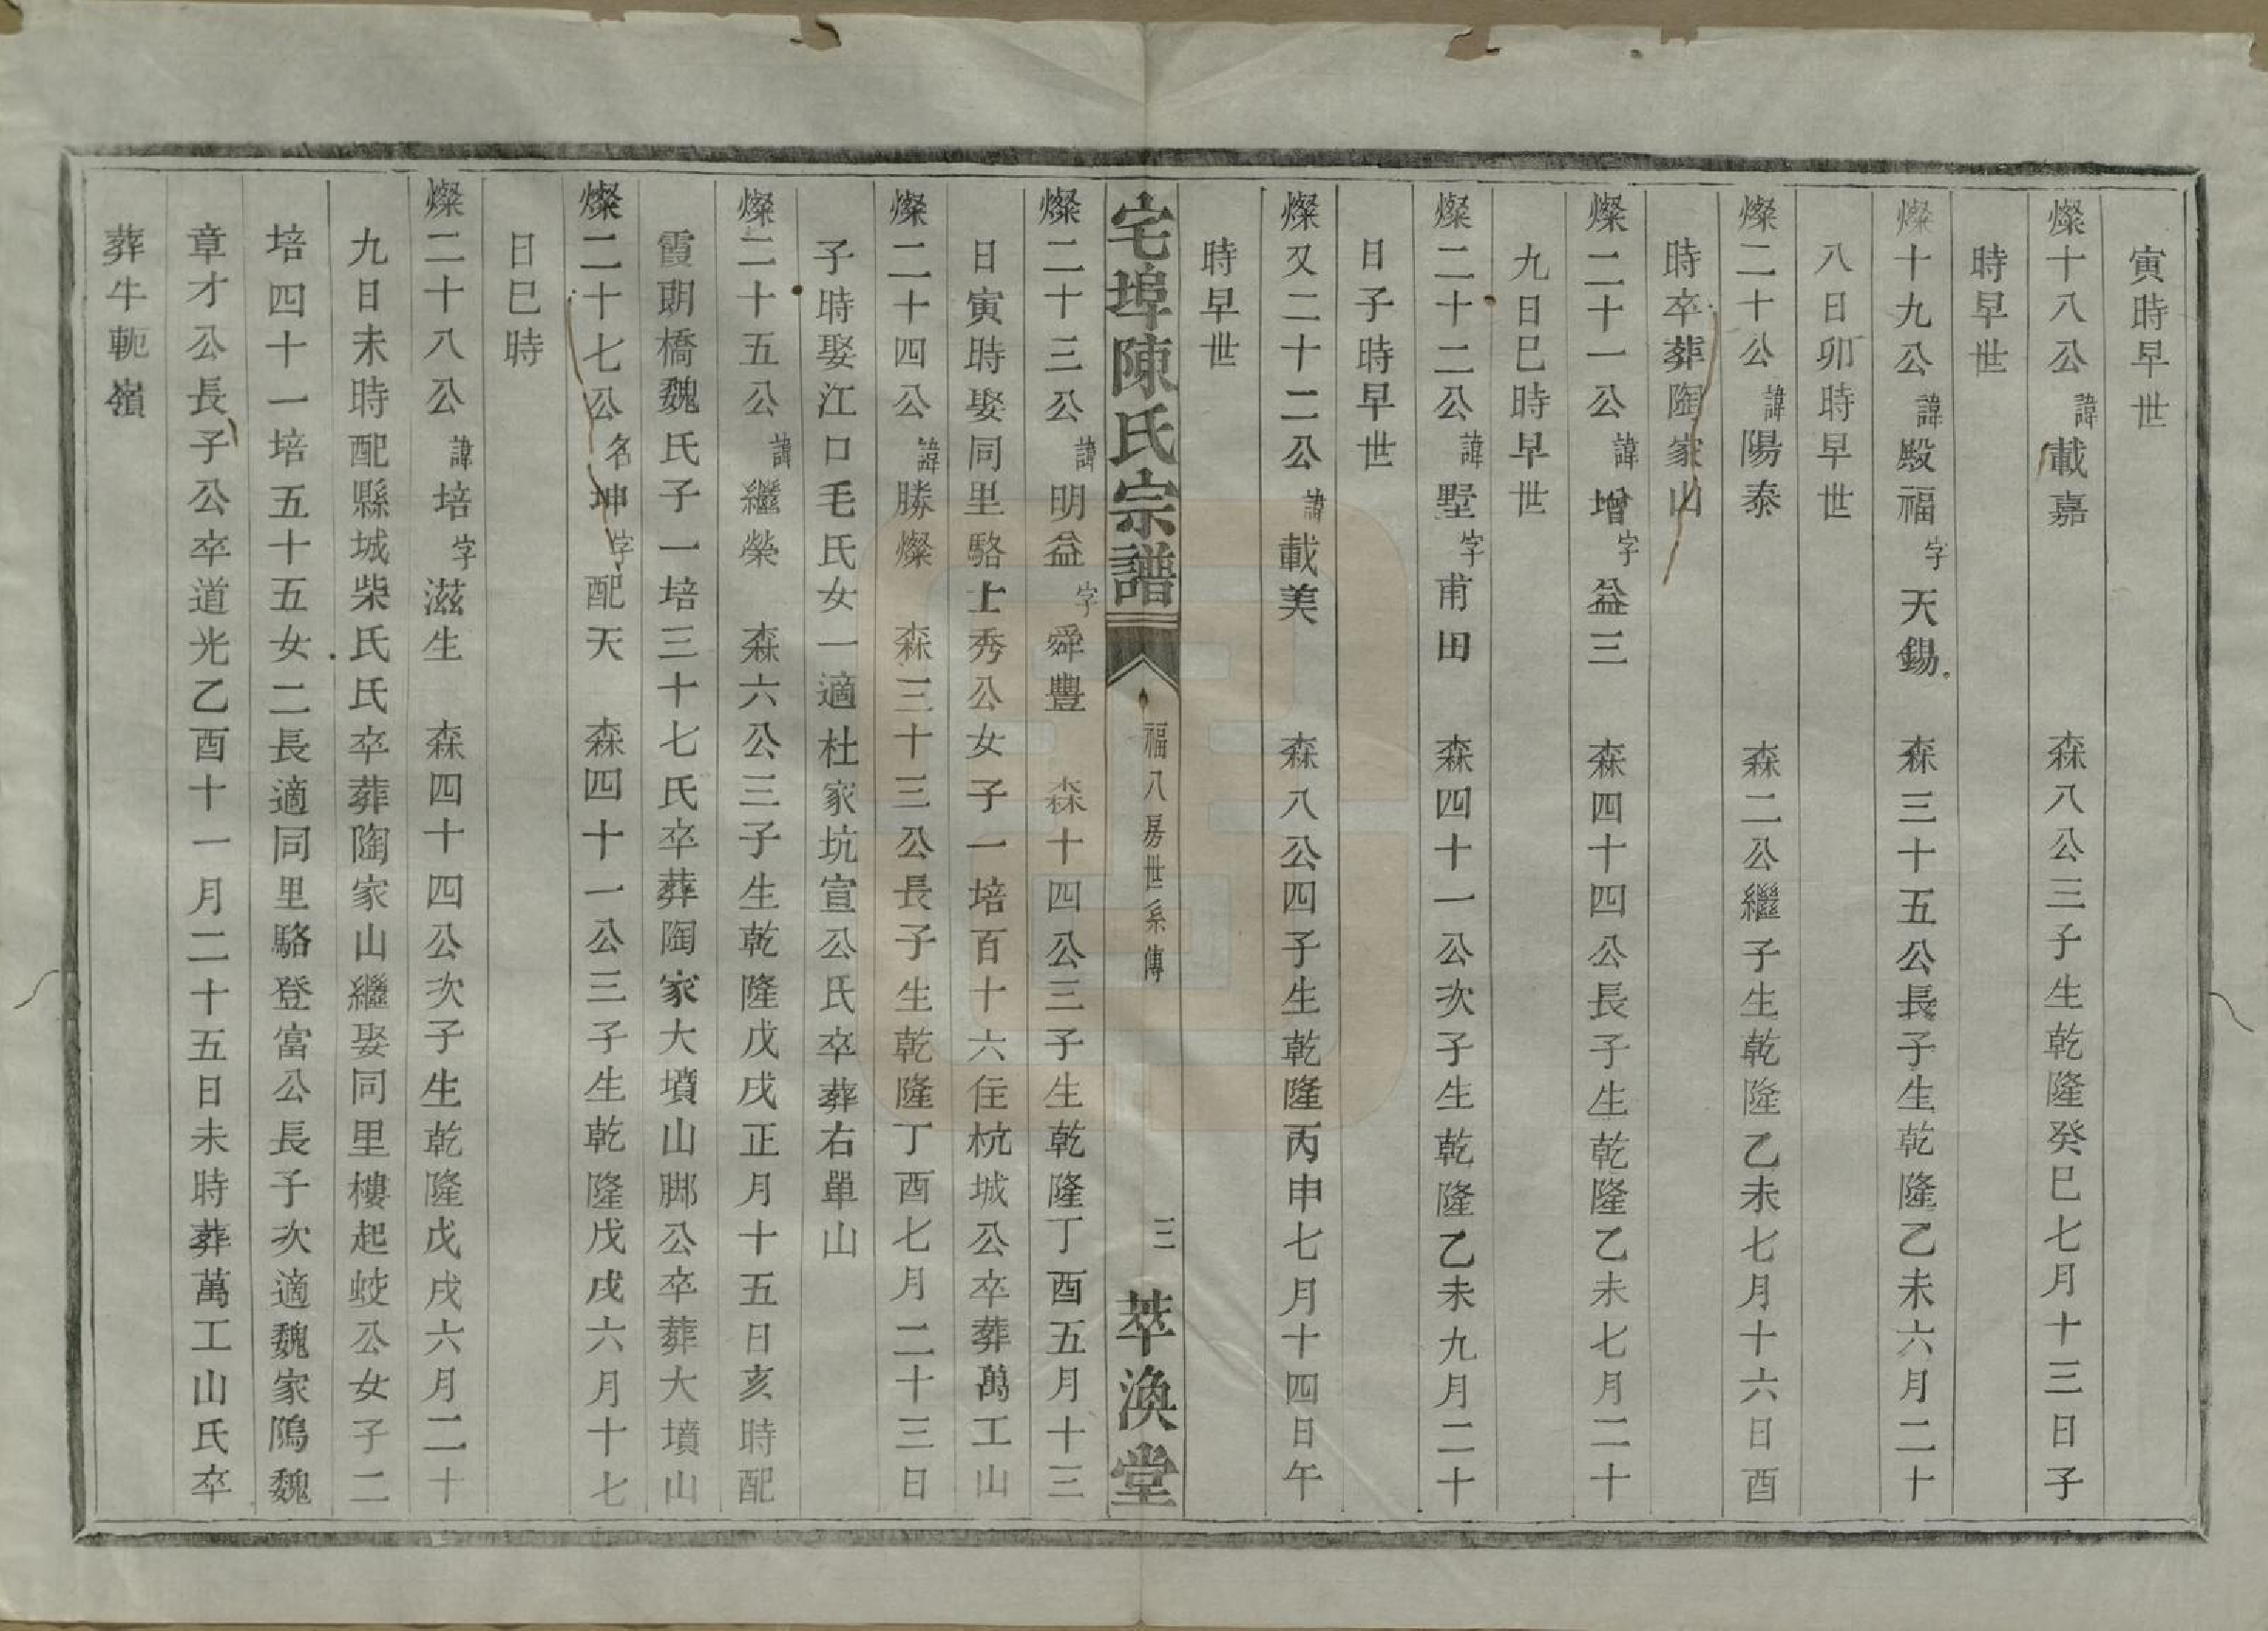 寅時早世
燦十八公諱載嘉　森八公三子生乾隆癸巳七月十三日子
時早世
燦十九公諱殿福字天錫　森三十五公長子生乾隆乙未六月二十
八日卯時早世
燦二十公諱陽泰　森二公繼子生乾隆乙未七月十六日酉
時卒葬陶家山
燦二十一公諱增字益三　森四十四公長子生乾隆乙未七月二十
九日巳時早世
燦二十二公諱墅字甫田　森四十一公次子生乾隆乙未九月二十
日子時早世
燦又二十二公諱載美　森八公四子生乾隆丙申七月十四日午
時早世
宅埠陳氏宗譜　福八房世系傳　三　萃渙堂
燦二十三公諱明益字舜豐　森十四公三子生乾隆丁酉五月十三
日寅時娶同里駱士秀公女子一培百十六住杭城公卒葬萬工山
燦二十四公諱勝燦　森三十三公長子生乾隆丁酉七月二十三日
子時娶江口毛氏女一適杜家坑宣公氏卒葬右單山
燦二十五公諱繼榮　森六公三子生乾隆戊戌正月十五日亥時配
霞朗橋魏氏子一培三十七氏卒葬陶家大墳山脚公卒葬大墳山
燦二十七公名坤字配天　森四十一公三子生乾隆戊戌六月十七
日巳時
燦二十八公諱培字滋生　森四十四公次子生乾隆戊戌六月二十
九日未時配縣城柴氏氏卒葬陶家山繼娶同里樓起蛟公女子二
培四十一培五十五女二長適同里駱登富公長子次適魏家隝魏
章才公長子公卒道光乙酉十一月二十五日未時葬萬工山氏卒
葬牛軛嶺